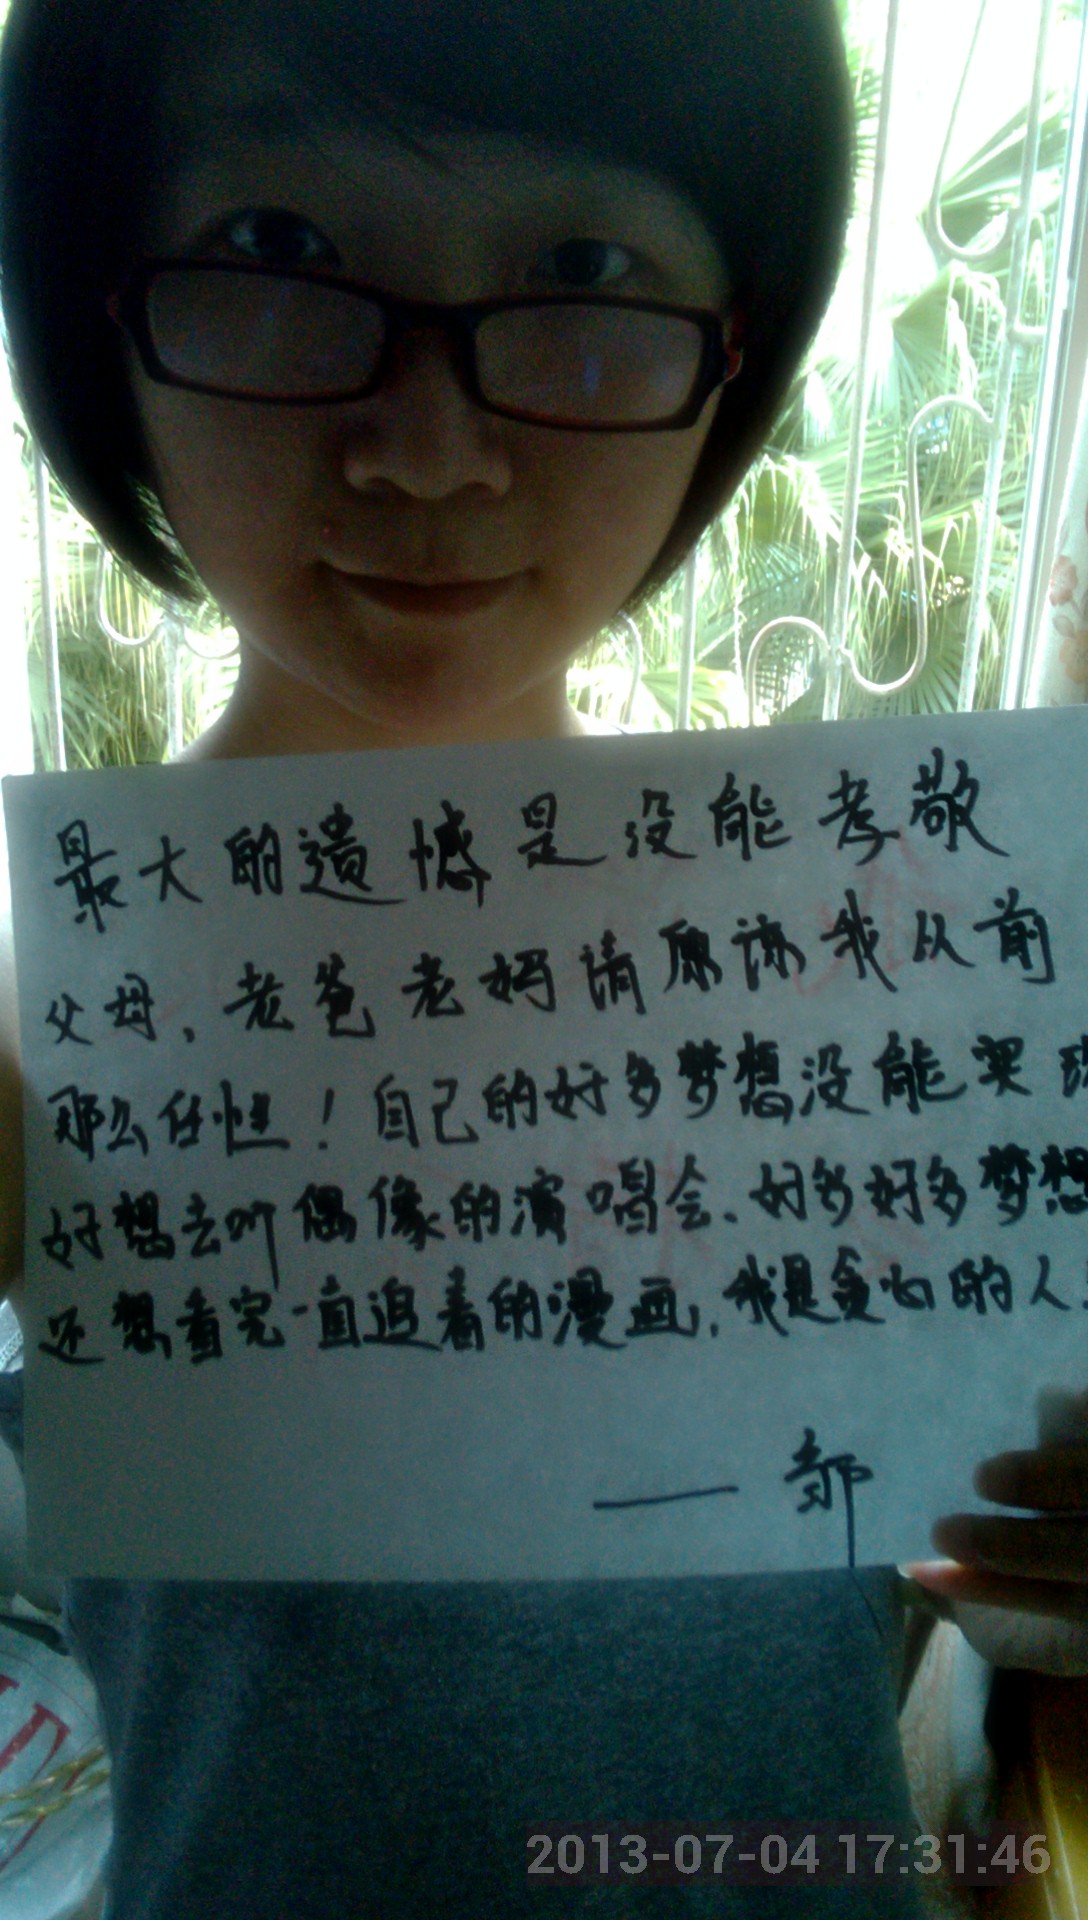 最大的遗憾是没能孝敬
父母,老爸老妈请原谅我从前
那么任性!自己的好多梦想没能实现
好想去听偶像的演唱会.好多好多梦想
还想看完一直追着的漫画,我是贪心的人
——郭
2013-07-04 17:31:46